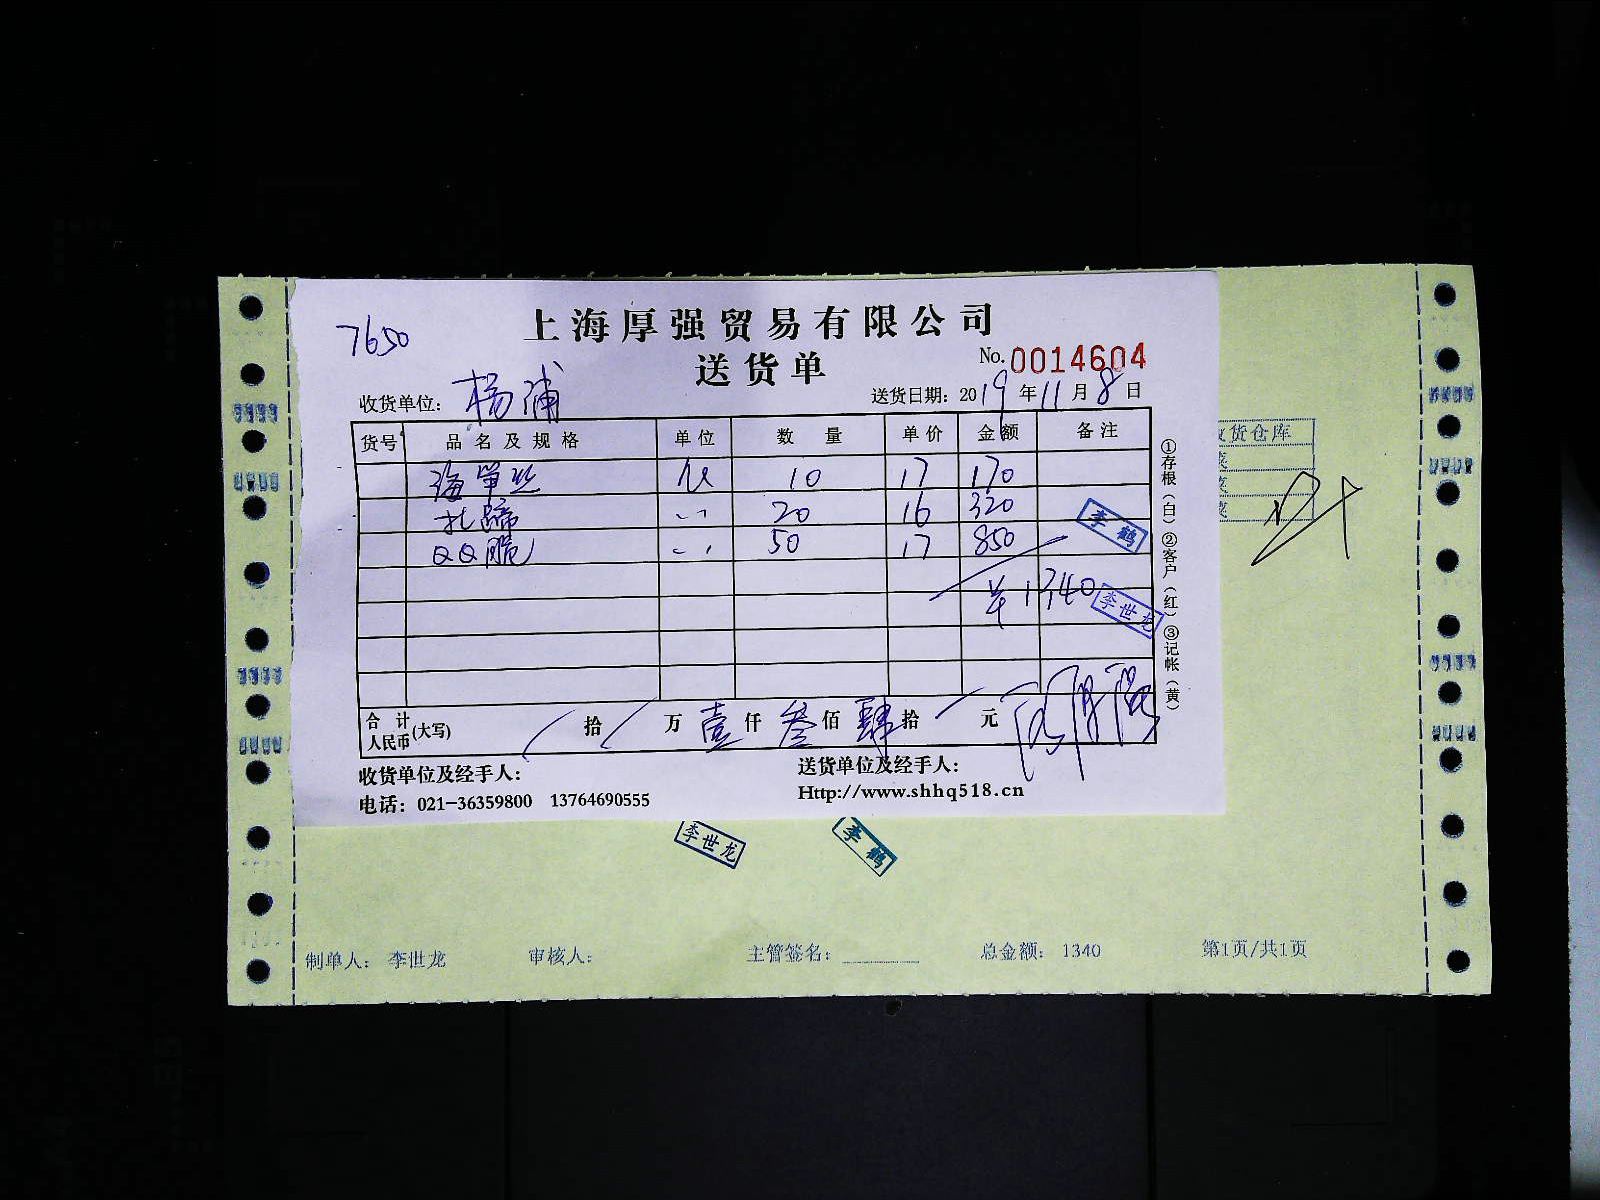 7650
上海厚强贸易有限公司
送货单
No. 0014604
收货单位: 杨浦
送货日期: 2019年11月8日
货号 品名及规格 单位 数量 单价 金额 备注
海笋丝 10 17 170
扎蹄 〃 20 16 320
QQ脆 〃 50 17 850
李鹤
¥1340
李世龙
合计人民币(大写) 拾 万 壹仟 叁佰 肆拾 元
收货单位及经手人:
送货单位及经手人:
电话: 021-36359800 13764690555
Http://www.shhq518.cn
①存根(白)②客户(红)③记帐(黄)
收货仓库
菜
菜
菜
李世龙
李鹤
制单人: 李世龙 审核人: 主管签名: 总金额: 1340 第1页/共1页